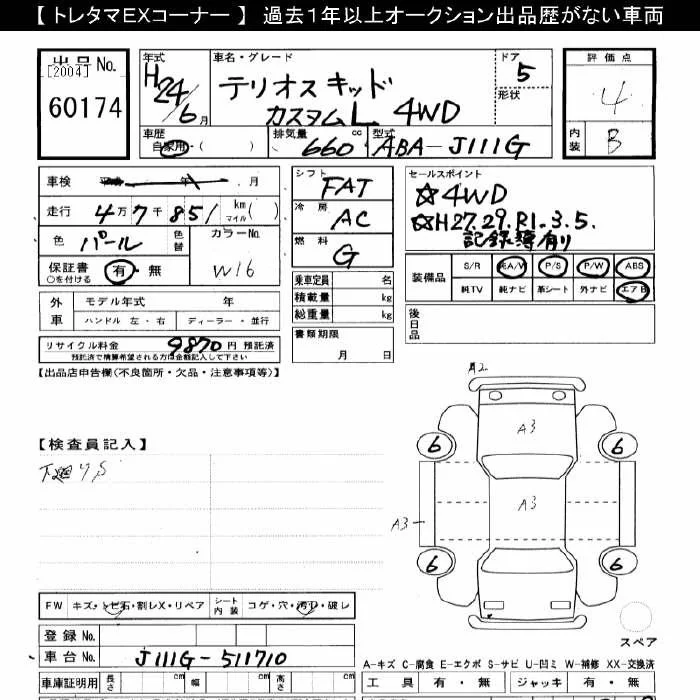 【 トレタマEXコーナー 】 過去1年以上オークション出品歴がない車両
出品 No.
[2004]
60174
年式
H24/6月
車名・グレード
テリオスキッド
カスタムL 4WD
ドア
5
形状
評価点
4
内装
B
車歴
自家用・( )
排気量
660 cc
型式
ABA-J111G
車検 平成 年 月
走行 4万7千851 km マイル ( )
色 パール
色替
カラーNo.
W16
保証書 有・無
○を付ける
シフト
FAT
冷房
AC
燃料
G
セールスポイント
☆4WD
☆H27.29.R1.3.5.
記録簿有り
装備品
S/R EA/W P/S P/W ABS
純TV 純ナビ 革シート 外ナビ エアB
外車
モデル年式 年
ハンドル 左・右 ディーラー・並行
乗車定員 名
積載量 kg
総重量 kg
書類期限
月 日
後日品
リサイクル料金 9870 円 預託済
預託済で精算希望される方は金額記入して下さい
【出品店申告欄(不良箇所・欠品・注意事項等)】
【検査員記入】
下廻りS
A2
A3
6 6
A3
A3
6 6
スペア
FW キズ・トビ石・割レX・リペア シート内装 コゲ・穴・汚レ・破レ
登録 No.
車台 No. J111G-511710
A-キズ C-腐食 E-エクボ S-サビ U-凹ミ W-補修 XX-交換済
車庫証明用 長さ cm 幅 cm 高さ cm
工具 有・無 ジャッキ 有・無